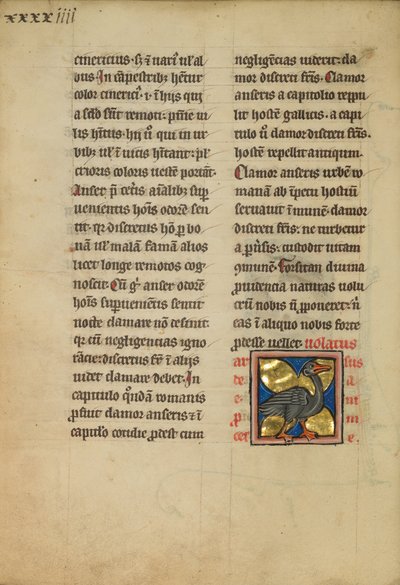 xxxxiiii
cinericius. sʒ ⁊ uariꝰ ul' al
bus. In cãpestribꝫ hẽtur
color cinericꝰ. i. ĩ hiis qui
a sclo sũt remoti. ꝓfitie ui
lis hĩtus. hij ũ qui in ur
bibꝫ ul' ĩ uicis hĩtant. pl'
crioris coloris uestẽ portãt.
Anser p̃ cet̃is aĩalibꝫ suꝑ
uenientis hoĩs odorẽ sen
tit. qꝛ discretus hõ ꝑ bo
nã ul' malã famã alios
licet longe remotos cog
noscit. Cũ gͦ anser odorẽ
hoĩs suꝑueniẽtis sentit
nocte clamare nõ desinit
qꝛ cũ negligencias igno
rãcie discretus fr̃ ĩ alijs
uidet clamare debet. In
capitulo quõdã romanis
ꝓfuit clamor anseris ⁊ ĩ
capitl̃o cotidie ꝓdest cum
negligẽcias uiderit. cla
mor discreti fr̃is. Clamor
anseris a capitolio reppu
lit hostẽ gallicus. a capi
tulo ũ clamor discreti fr̃is.
hostẽ repellit antiqum.
Clamor anseris urbẽ ro
manã ab ĩpetu hostiũ
seruauit ĩmunẽ. clamor
discreti fr̃is. ne turbetur
a ꝑuersis. custodit uitam
ꝯmunẽ. Forsitan diuina
prudencia naturas uolu
crũ nobis ñ ꝓponeret. ñ
eas ĩ aliquo nobis forte
ꝓdesse uellet. uolatus